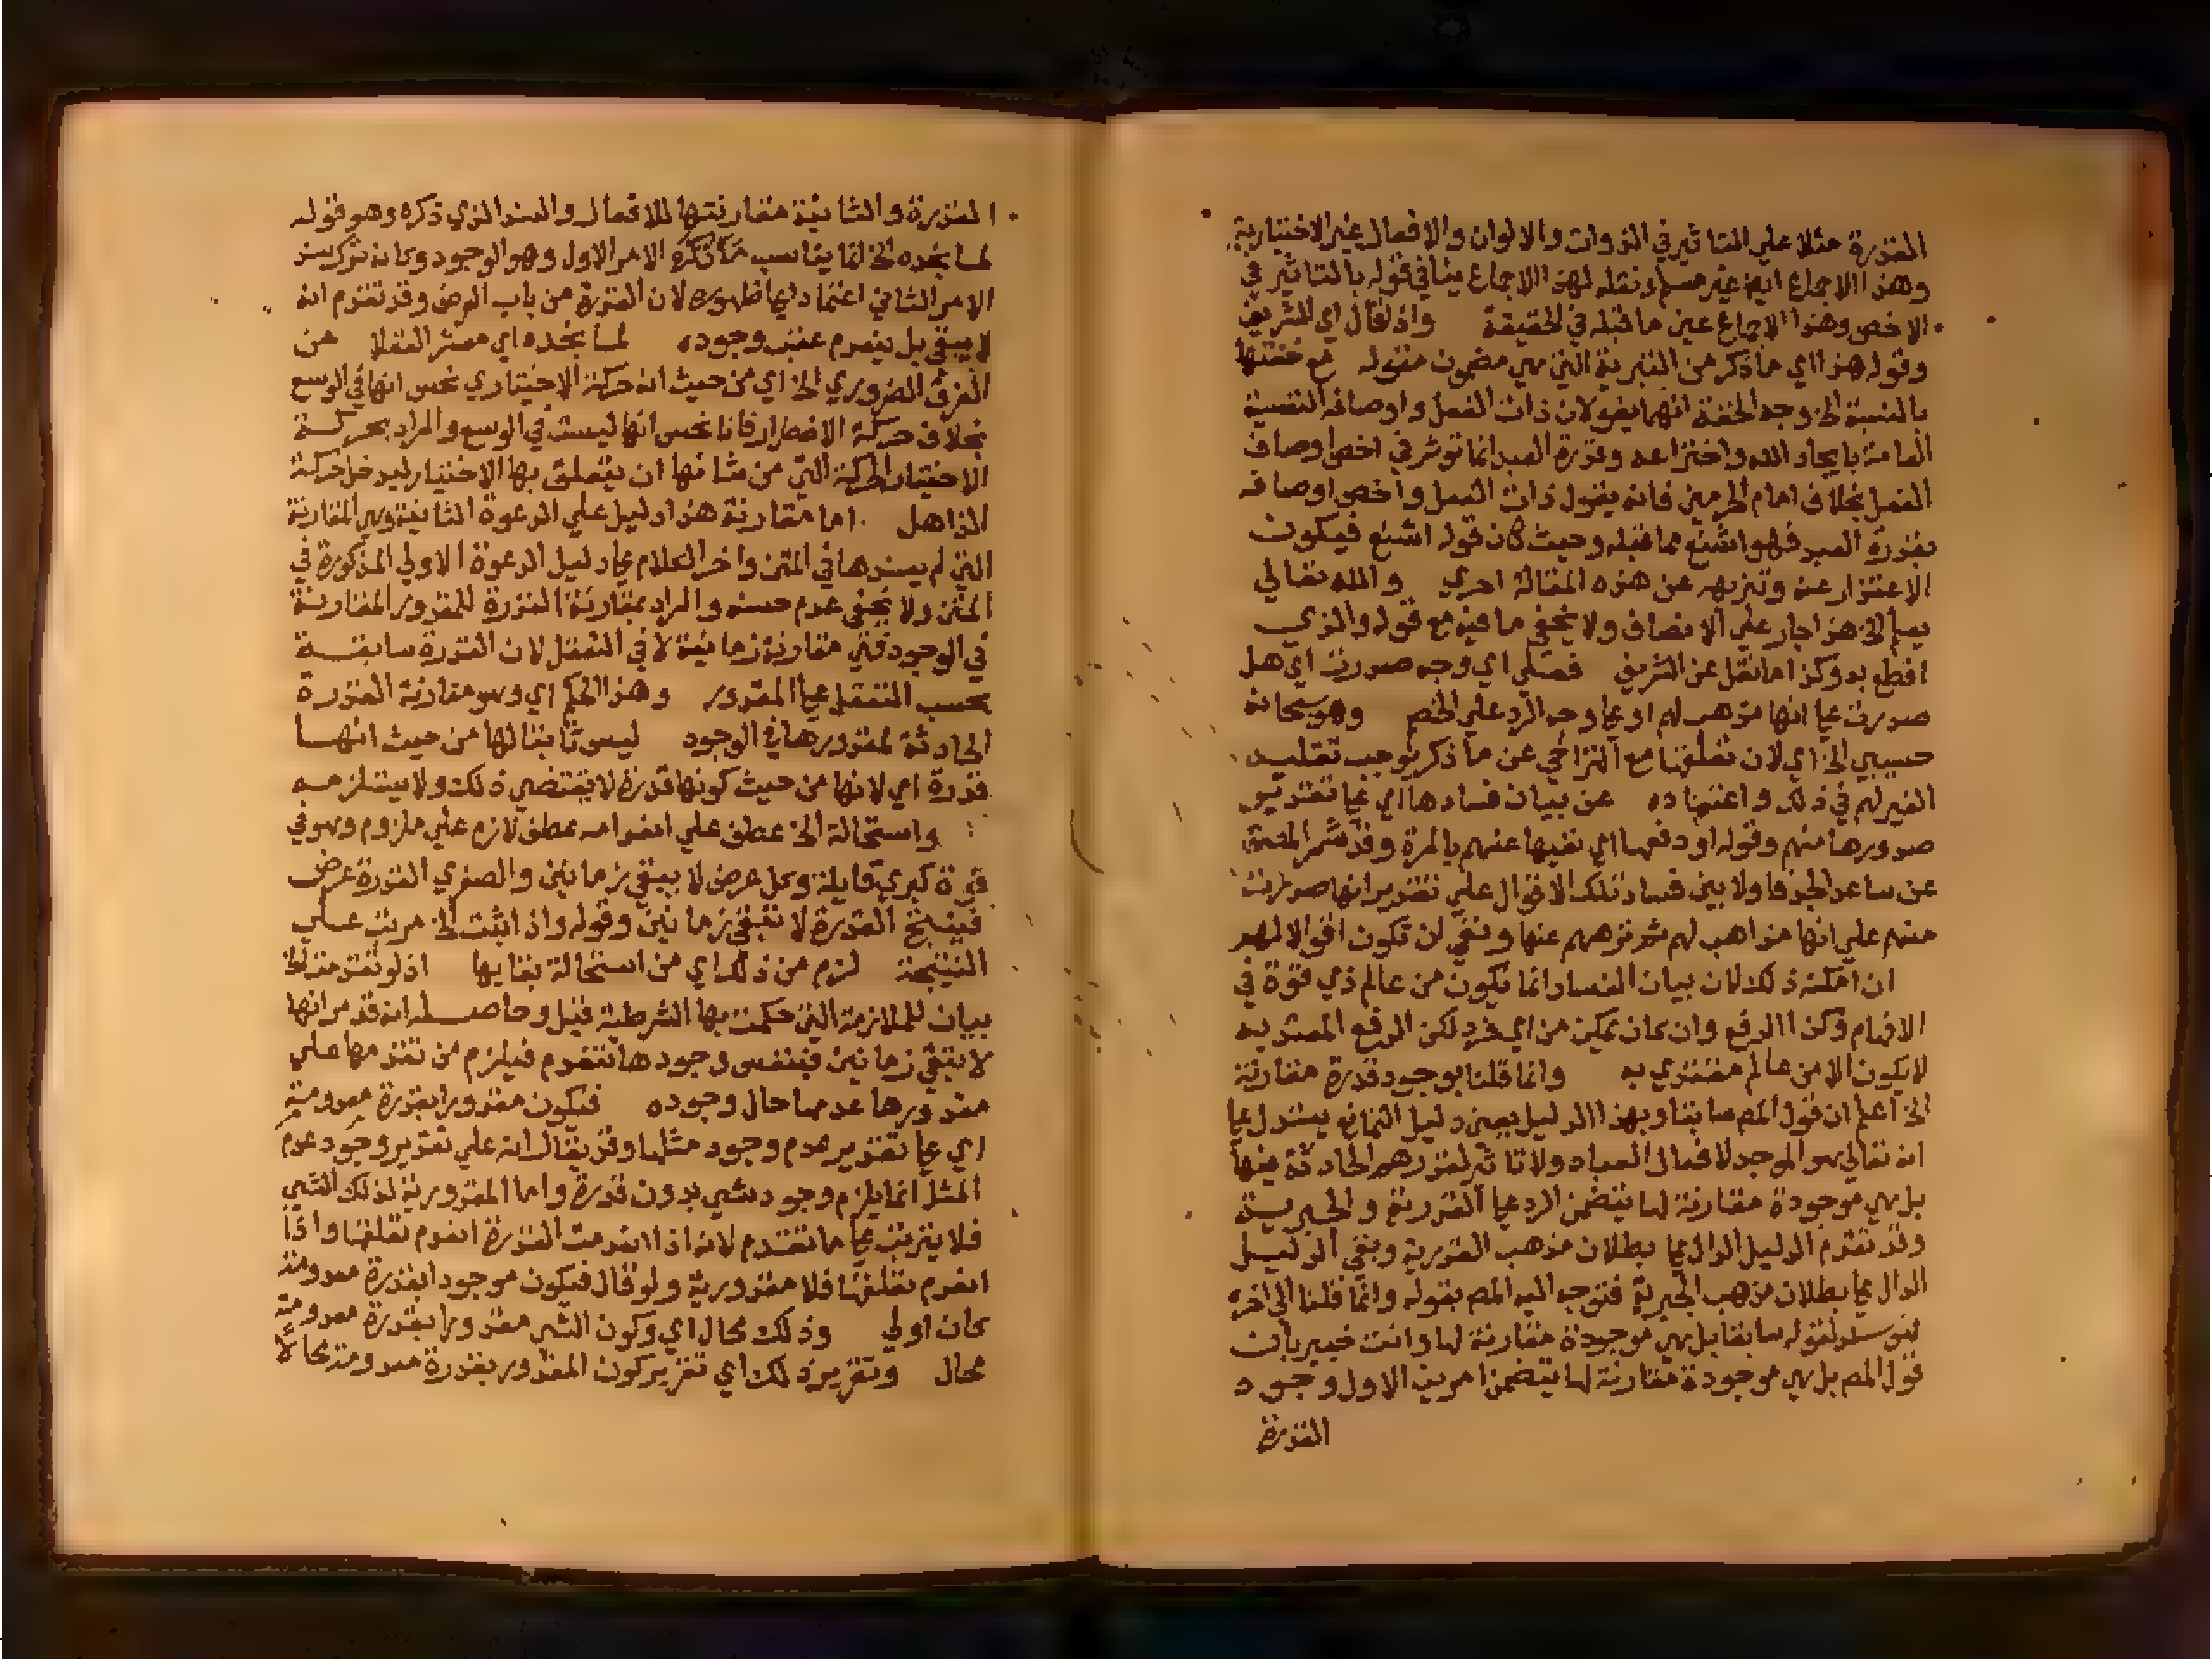 القدرة مثلا علي التاثير في الذوات والالوان والافعال غير الاختيارية
وهذا الاجماع ايضا غير مسلم ونقله لهذا الاجماع ينافي قوله بالتاثير في
الاخص وهذا الاجماع عين ما قبله في الحقيقة واذ لقال اي الشريف
وقوله هذا اي ما ذكر من القبرية التي هي مضمون مقوله مع خفتها
بالنسبة الخ وجه الخفة انهما يقولان ذات الفعل واوصافه النفسية
العامة بايجاد الله واختراعه وقدرة العبد انما توثر في اخص اوصاف
الفعل بخلاف امام الحرمين فانه يقول ذات الفعل واخص اوصافه
بقدرة العبد فهو اشنع مما قبله وحيث كان قوله اشنع فيكون
الاعتذار عنه وتنزيهه عن هذه المقالة احري والله تعالي
يعلم الخ هذا جار علي الانصاف ولا يخفي ما فيه مع قوله والذي
اقطع به وكذا ما نقل عن الشريف فعلي اي وجه صدرت اي هل
صدرت علي انها مذهب لهم او علي وجه الرد علي الخصم وهو سبحانه
حسبي الخ اي لان تعلقنا مع التراخي عن ما ذكر يوجب تقليد
الغير لهم في ذلك واعتقاده عن بيان فسادها اي علي تقدير
صدورها منهم وقوله او دفعها اي نفيها عنهم بالمرة وقد شمر المصنف
عن ساعد الجد فاولا بين فساد تلك الاقوال علي تقدير انها صدرت
منهم علي انها مذاهب لهم ثم نزههم عنها ونفي ان تكون اقوالا لهم
ان امكنه ذلك لان بيان الفساد انما يكون من عالم ذي قوة في
الافهام وكذا الدفع وان كان يمكن من اي فرد لكن الدفع المعتد به
لا يكون الا من عالم مقتدي به وانما قلنا بوجود قدرة مقارنة
الخ اعلم ان قول المص سابقا وبهذا الدليل بعينه دليل التمانع يستدل علي
انه تعالي هو الموجد لافعال العباد ولا تاثير لقدرهم الحادثة فيها
بل هي موجودة مقارنة لها يتضمن الرد علي القدرية والجبرية
وقد تقدم الدليل الدال علي بطلان مذهب القدرية وبقي الدليل
الدال علي بطلان مذهب الجبرية فتوجه اليه المص بقوله وانما قلنا الي اخره
لقوله سابقا بل هي موجودة مقارنة لها وانت خبير بان
قول المص بل هي موجودة مقارنة لها يتضمن امرين الاول وجود
القدرة
القدرة والثانية مقارنتها للافعال والسند الذي ذكره وهو قوله
لما نجده الخ انما يناسب الامر الاول وهو الوجود وكانه ترك سند
الامر الثاني اعتمادا علي ظهوره لان القدرة من باب العرض وقد تقدم انه
لا يبقي بل ينعدم عقب وجوده لما نجده اي معشر العقلا من
الفرق الضروري الخ اي من حيث ان حركة الاختياري نحس انها في الوسع
بخلاف حركة الاضطرار فانا نحس انها ليست في الوسع والمراد بحركة
الاختيار الحركة التي من شانها ان يتعلق بها الاختيار ليدخل حركة
الذاهل اما مقارنة هذا دليل علي الدعوة الثانية وهي المقارنة
التي لم يسندها في المتن واخر الكلام علي دليل الدعوة الاولي المذكورة في
المتن ولا يخفي عدم حسنه والمراد بمقارنة القدرة للمقدور المقارنة
في الوجود فهي مقارنة زمانية لا في التعقل لان القدرة سابقة
بحسب التعقل علي المقدور وهذا الحكم اي وهو مقارنة القدرة
الحادثة لمقدورها في الوجود ليس ثابتا لها من حيث انها
قدرة اي لانها من حيث كونها قدرة لا يقتضي ذلك ولا يستلزمه
واستحالة الخ عطف علي انعدامه عطف لازم علي ملزوم وهو في
قوة كبري قايلة وكل عرض لا يبقي زمانين والصغري القدرة عرض
فينتج القدرة لا تبقي زمانين وقوله واذا ثبت الخ مرتب علي
النتيجة لزم من ذلك اي من استحالة بقايها اذ لو تقدمت الخ
بيان للملازمة التي حكمت بها الشرطية قبل وحاصله انه قد مر انها
لا تبقي زمانين فبنفس وجودها تنعدم فيلزم من تقدمها علي
مقدورها عدمها حال وجوده فيكون مقدورا بقدرة معدومة
اي علي تقدير عدم وجود مثلها وقد يقال انه علي تقدير وجود عدم
المثل انما يلزم وجود شي بدون قدرة واما المقدورية لذلك الشي
فلا يترتب علي ما تقدم لانه اذا انعدمت القدرة انعدم تعلقها واذا
انعدم تعلقها فلا مقدورية ولو قال فيكون موجودا بقدرة معدومة
كان اولي وذلك محال اي وكون الشي مقدورا بقدرة معدومة
محال وتقرير ذلك اي تقرير كون المقدور بقدرة معدومة محالا